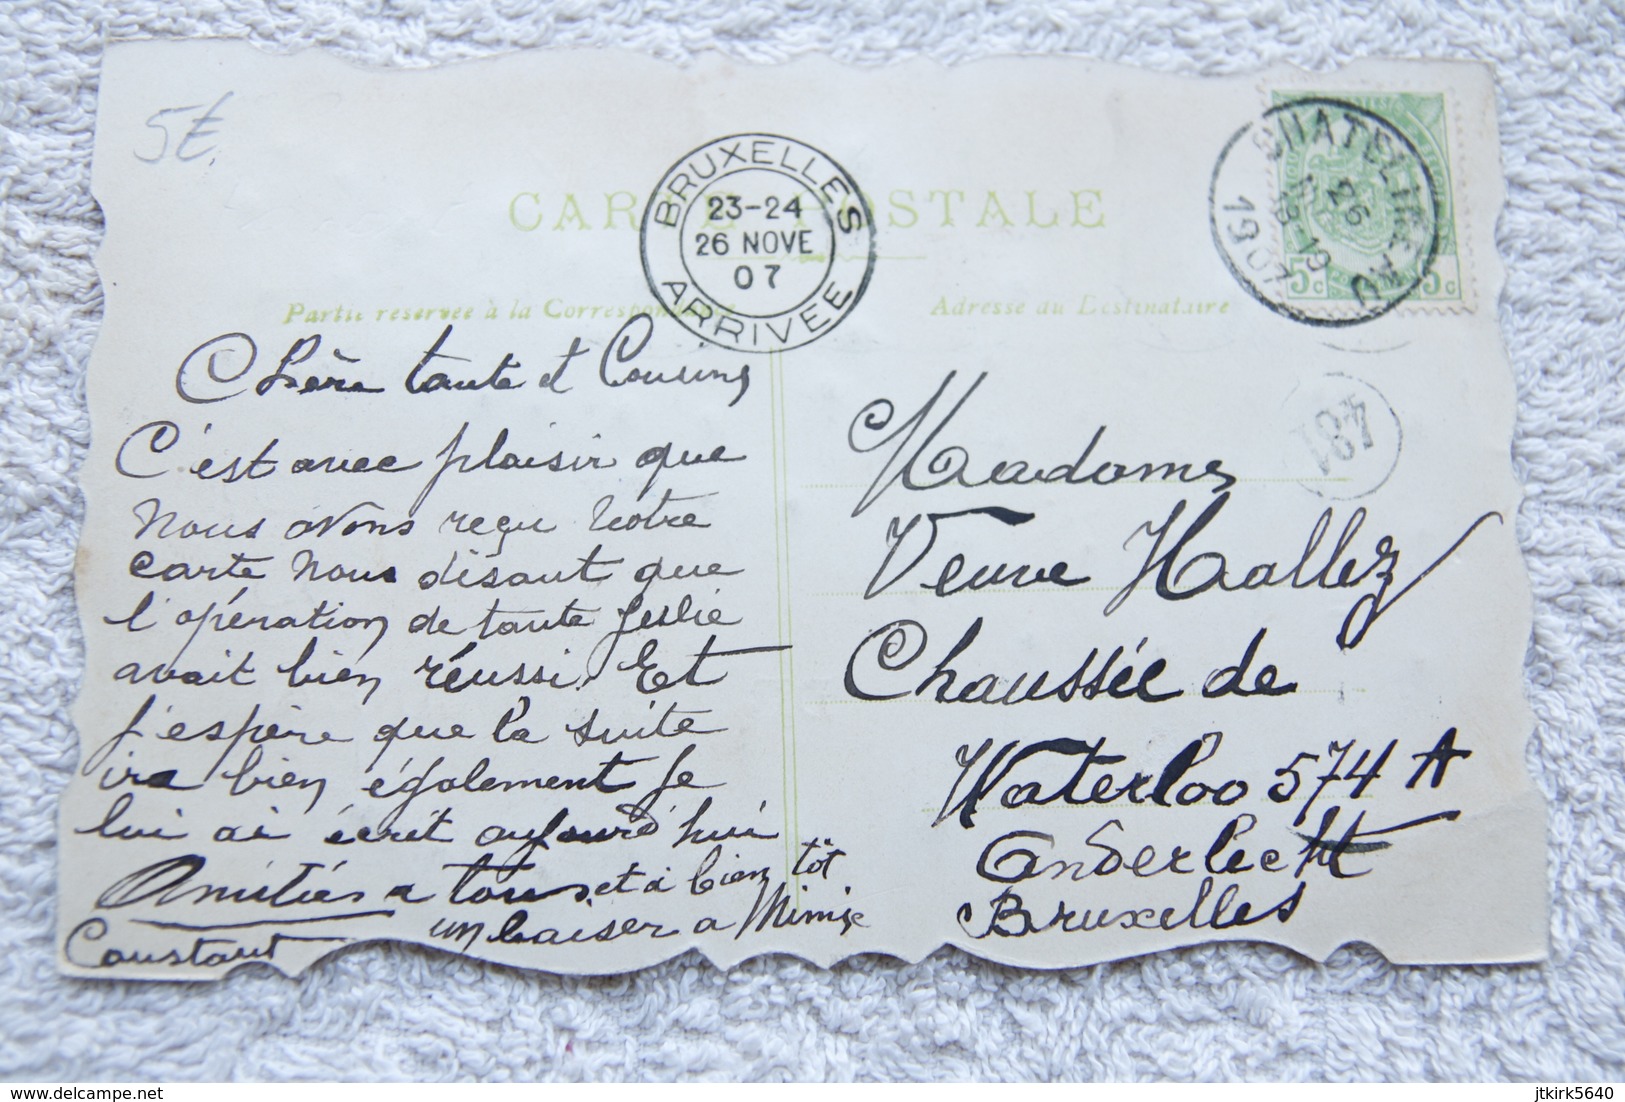 5€
CARTE POSTALE
BRUXELLES
23-24
26 NOVE
07
ARRIVEE
CHATELINEAU
26
18-19
1907
5c 5c
Partie reservée à la Correspondance
Adresse du Destinataire
481
Chère tante et Cousins
C'est avec plaisir que
nous avons reçu votre
carte nous disant que
l'opération de tante Jeslie
avait bien réussi. Et
j'espère que la suite
ira bien également je
lui ai écrit aujourd'hui
Amitiés a tous et à bien tôt
un baiser a Mimie
Constant
Madame
Veuve Hallez
Chaussée de
Waterloo 574 A
Anderlecht
Bruxelles
delcampe.net
jtkirk5640